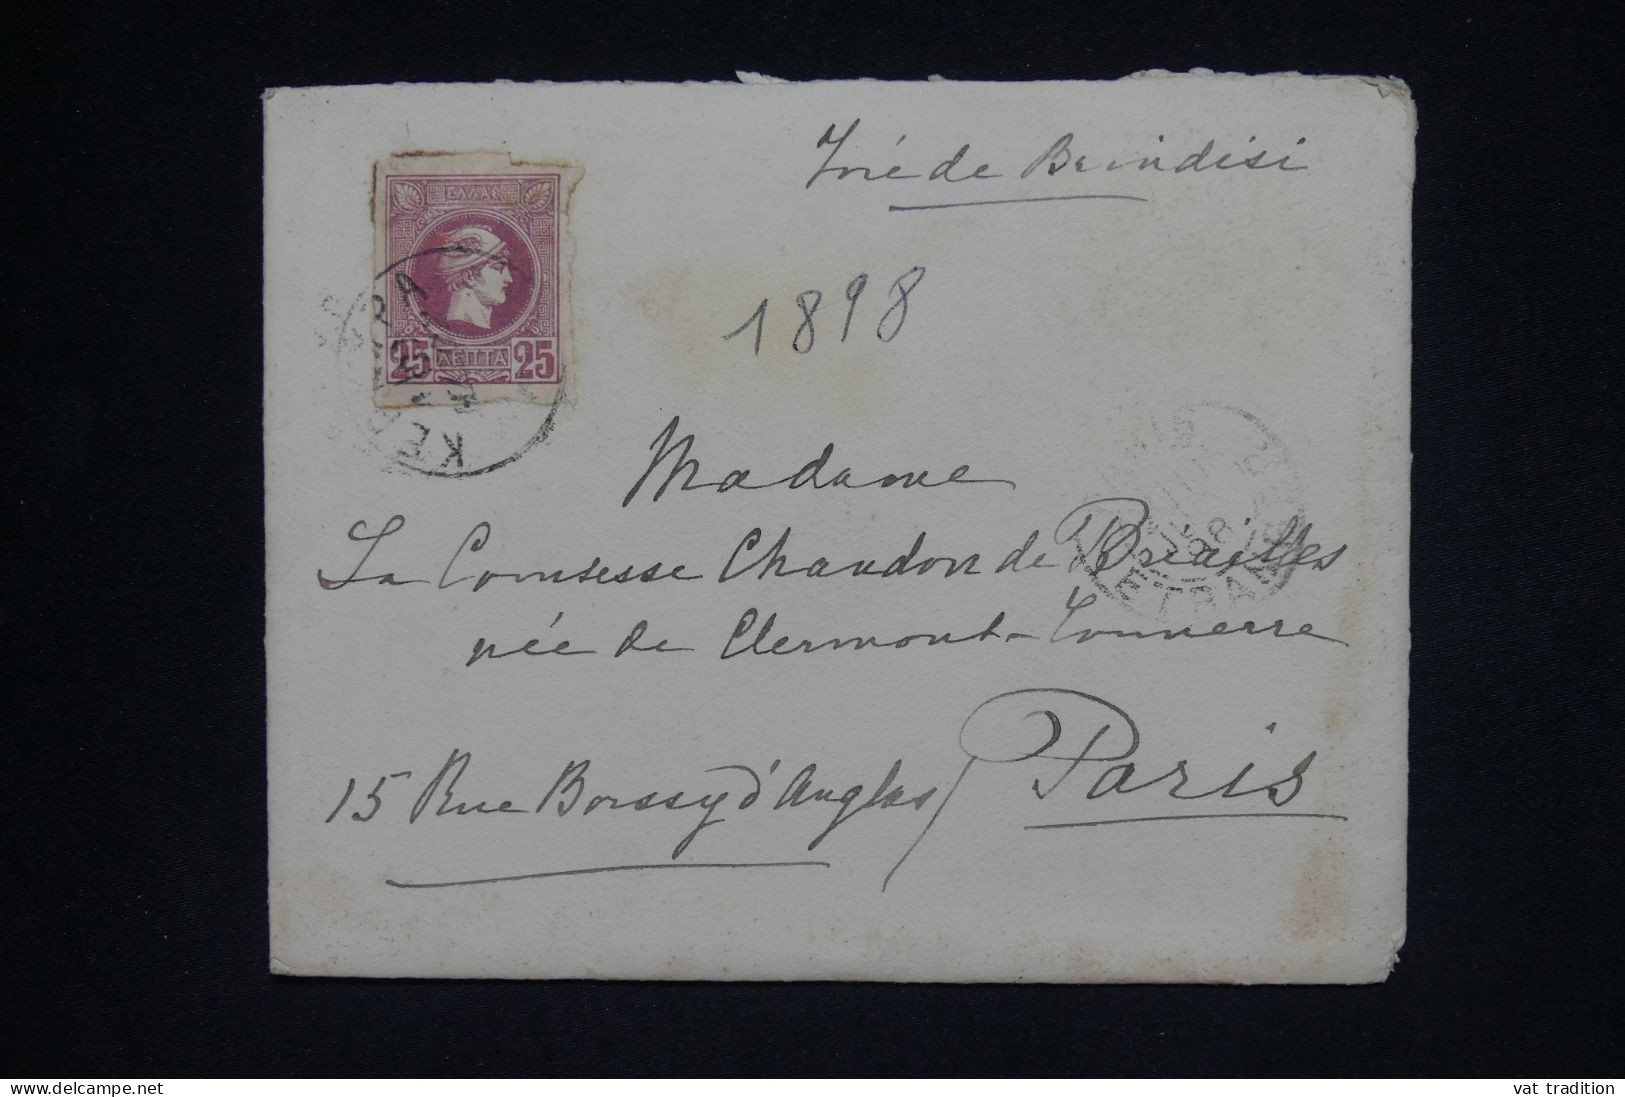 Voie de Brindisi
ΕΛΛΑΣ
1898
25 ΛΕΠΤΑ 25
ΚΕΡ ΡΑ
Madame
La Comtesse Chandon de Briailles
née de Clermont-Tonnerre
98
ETRANG
15 Rue Boissy d'Anglas / Paris
www.delcampe.net
vat tradition